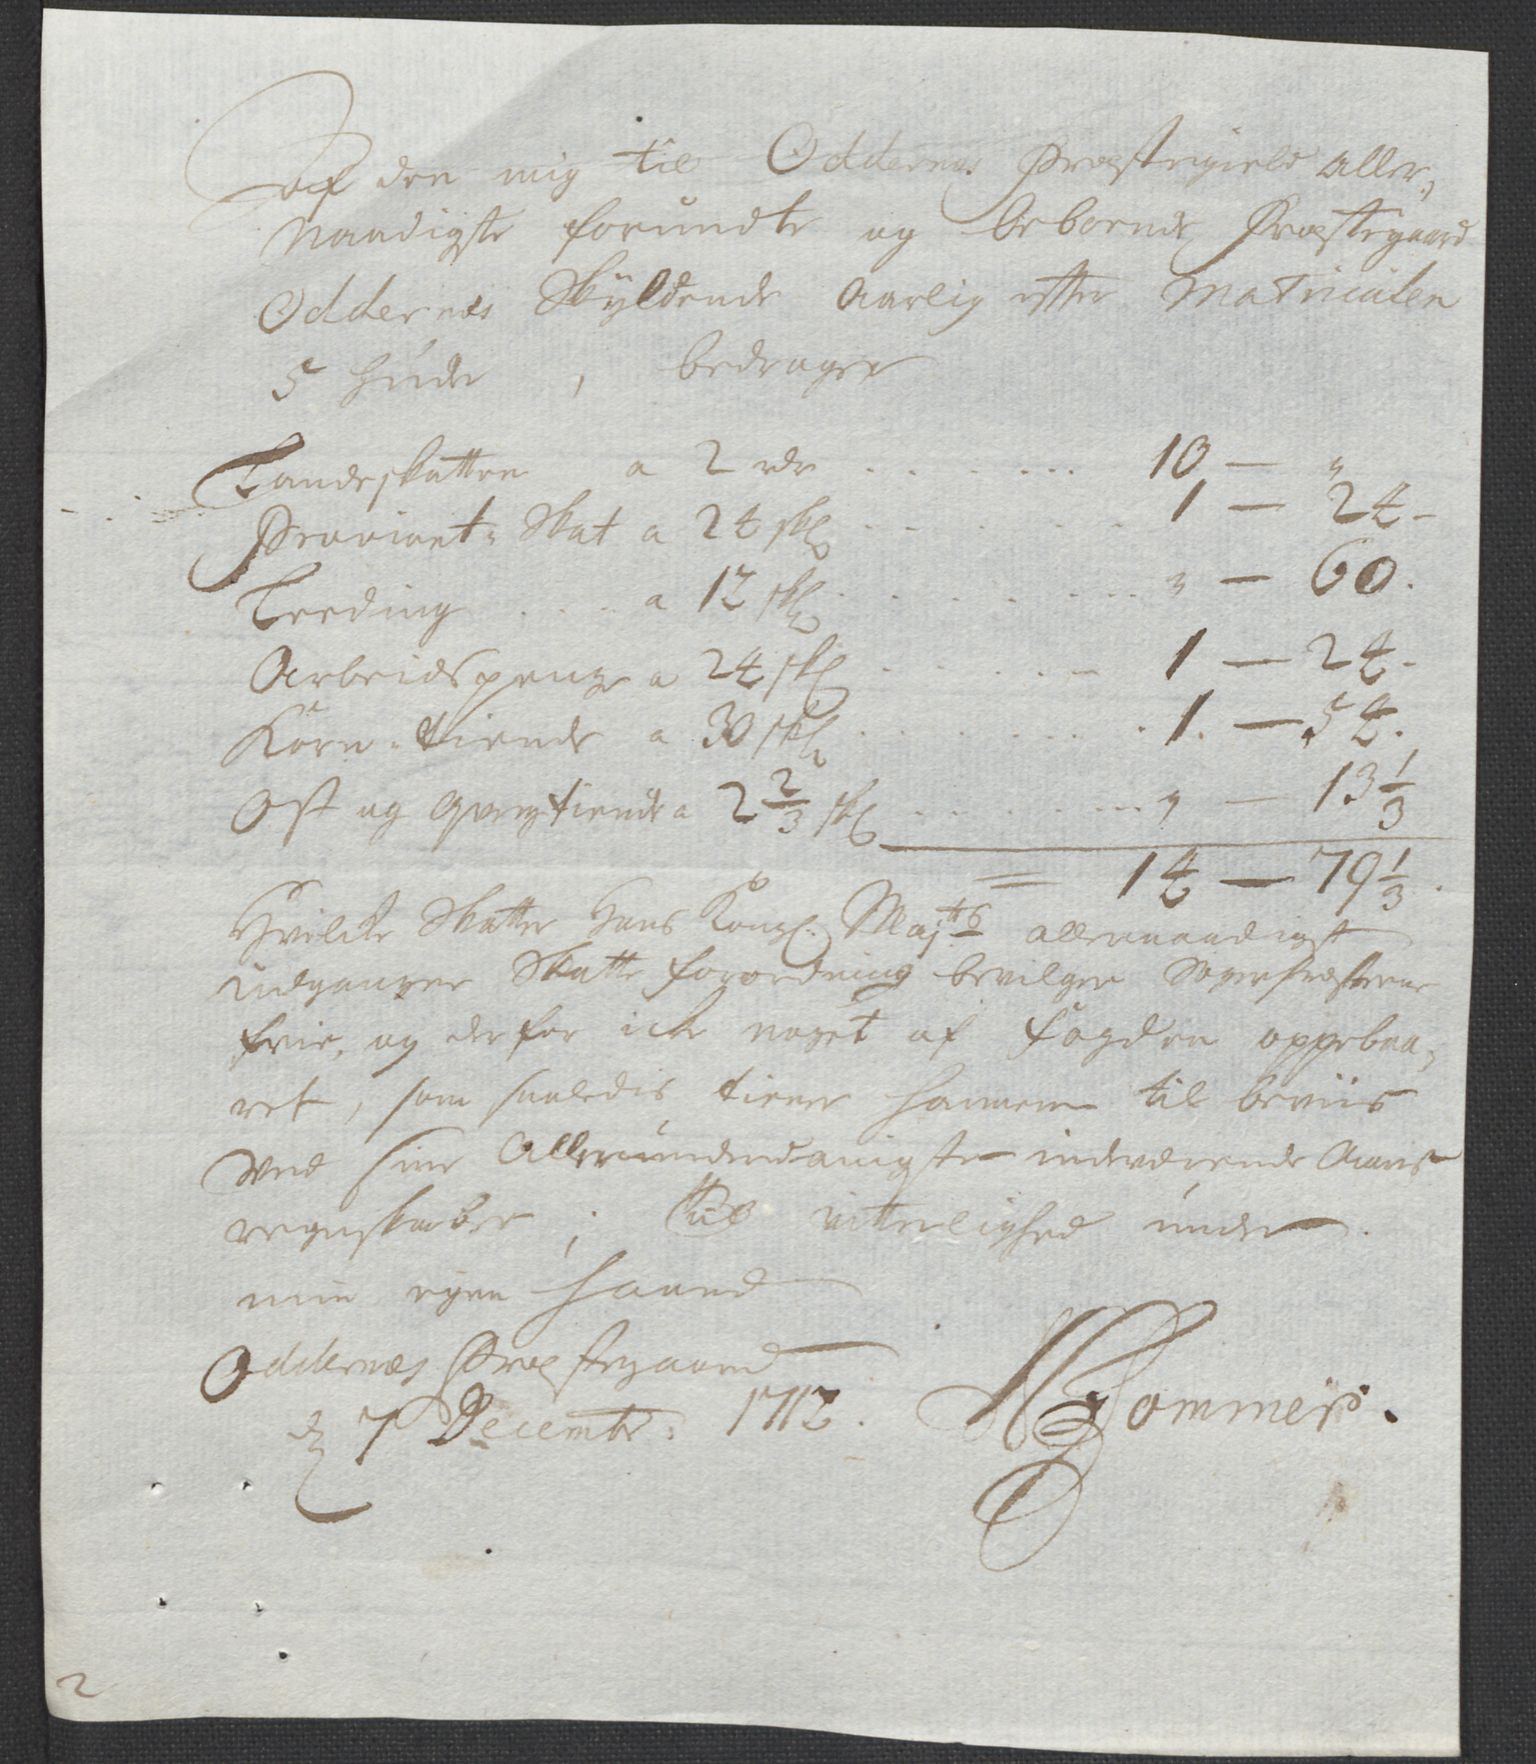 Af den mig til Oddernes Præstegield aller,
Naadigste forundte og beboende Præstegaard
Oddernes Skÿldende Aarlig efter Matriculen
5 huder, bedrager
Landskatten a 2 rdr ....... 10 — "
Proviant-Skat a 24 skl ....... 1 — 24 -
Leeding .... a 12 skl ........ " — 60.
Arbeidspenge a 24 skl ...... 1 — 24.
Korn-tiende a 30 skl ....... 1. — 54.
Ost og Qvegtiende a 2 2/3 skl ....... " — 13 1/3
= 14 — 79 1/3.
Hvilcke Skatter Hans Kongl. Maj:ts allernaadigst
udgangne Skatte forordning bevilger Sognepræsterne
frie, og derfor icke noget af fogden oppebaa,
ret, som saaledis tiener hannem til beviis
ved sine Allerunderdanigste indeværende Aars
regnskaber; Til vitterlighed under
min egen haand
Oddernes Præstegaard
d 7 Decembr: 1712. Sommer.
2